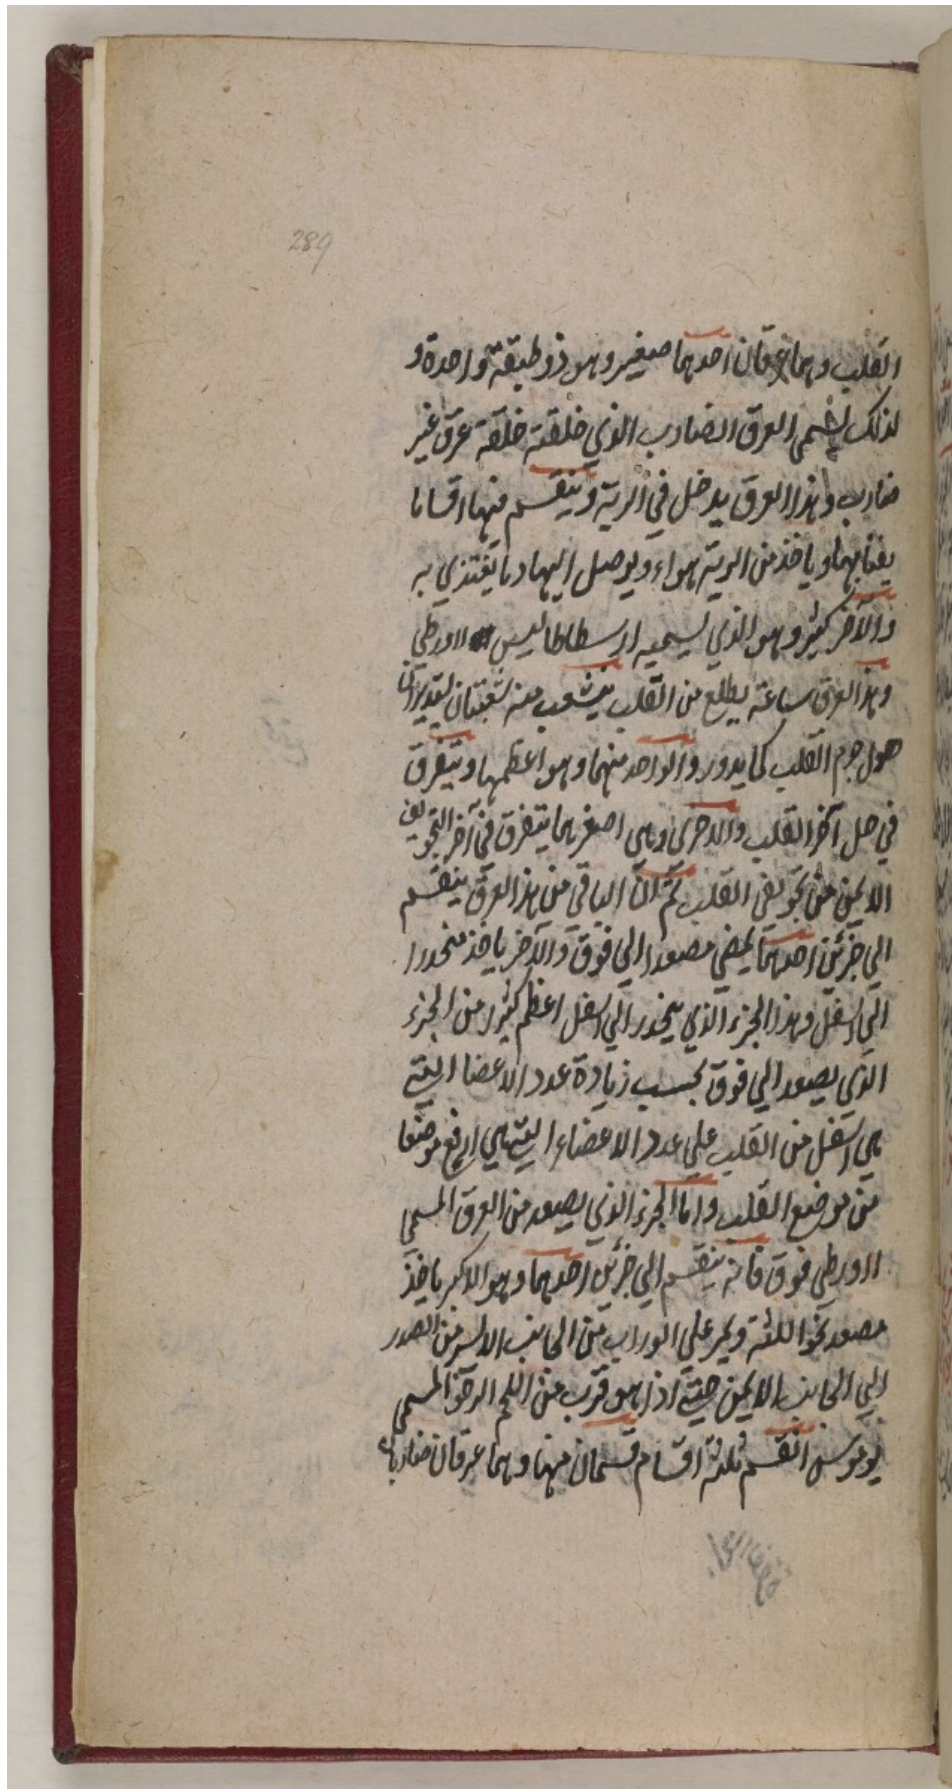 289
القلب وهما عرقان احدهما صغير وهو ذو طبقة واحدة و
لذلك يسمى العرق الضارب الذي خلقته خلقة عرق غير
ضارب وهذا العرق يدخل في الرية وينقسم فيها اقساما
ياخذ من الرية هواء ويوصل اليها دما تغتذي به
والآخر كثير وهو الذي يسميه ارسطاطاليس ااورطي
وهذا العرق ساعة يطلع من القلب ينشعب منه شعبتان
حول جرم القلب كما يدور والواحد منهما وهو اعظمها ويتفرق
في كل آخر القلب والاخرى وهي اصغرهما يتفرق في آخر التجويف
الايمن من تجويفي القلب ثم ان الباقي من هذا العرق ينقسم
الي جزئين احدهما يمضي مصعدا الي فوق والآخر ياخذ منحدرا
الي اسفل وهذا الجزء الذي ينحدر الي اسفل اعظم كثيرا من الجزء
الذي يصعد الي فوق بحسب زيادة عدد الاعضا التي
هي اسفل من القلب علي عدد الاعضاء التي هي ارفع موضعا
من موضع القلب واما الجزء الذي يصعد من العرق المسمي
ااورطي فوق فانه ينقسم الي جزئين احدهما وهو الاكبر ياخذ
مصعد نحو اللثة ويمر علي الوراب من الجانب الايسر من الصدر
الي الجانب الايمن حتي اذا هو قرب من اللحم الرخو المسمي
يوموس انقسم ثلثة اقسام قسمان منها وهما عرقان ضاربان